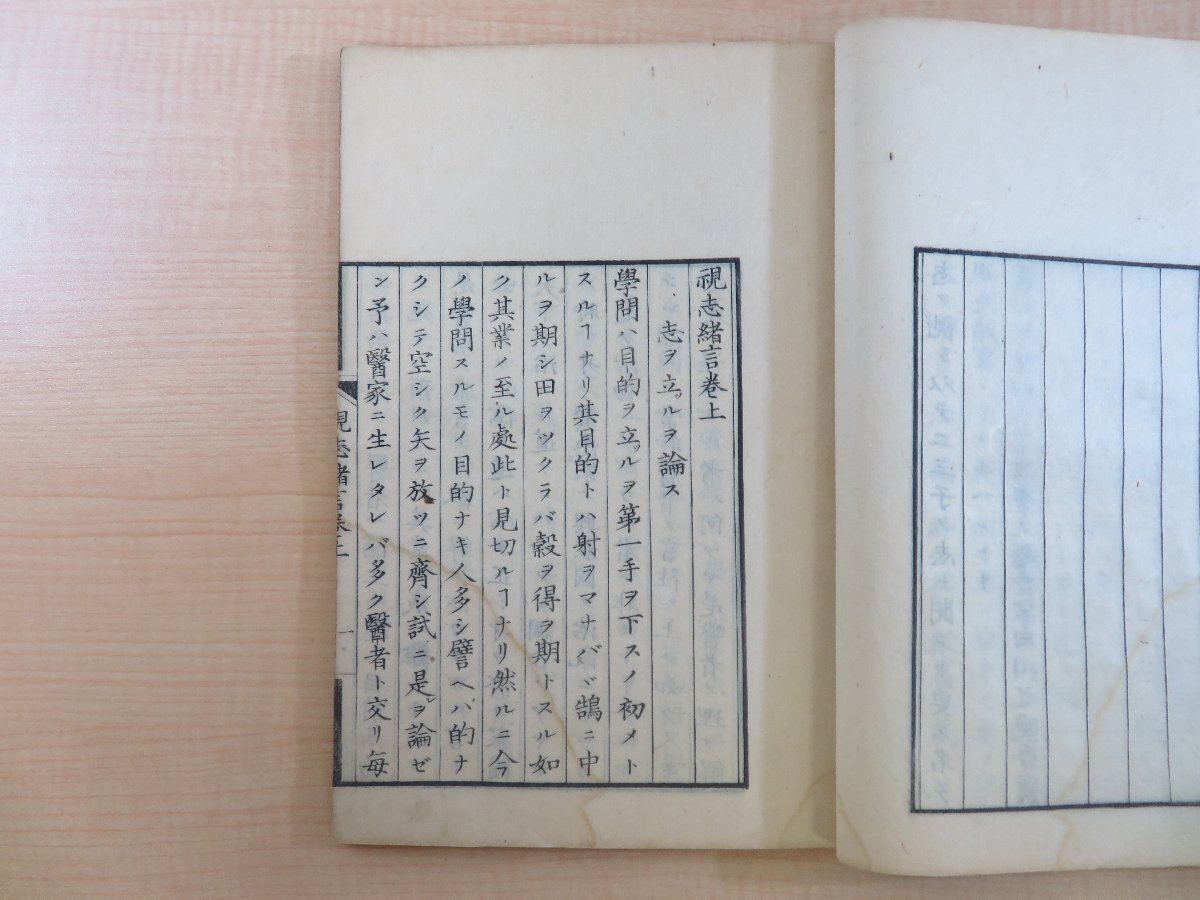 視志緒言巻上
志ヲ立ツルヲ論ス
學問ハ目的ヲ立ツルヲ第一手ヲ下スノ初メト
スルヿナリ其目的トハ射ヲマナバヾ鵠ニ中
ルヲ期シ田ヲツクラバ穀ヲ得ヲ期トスル如
ク其業ノ至ル處此ト見切ルヿナリ然ルニ今
ノ學問スルモノ目的ナキ人多シ譬ヘバ的ナ
クシテ空シク矢ヲ放ツニ齊シ試ニ是ヲ論ゼ
ン予ハ醫家ニ生レタレバ多ク醫者ト交リ毎
視志緒言巻上
一